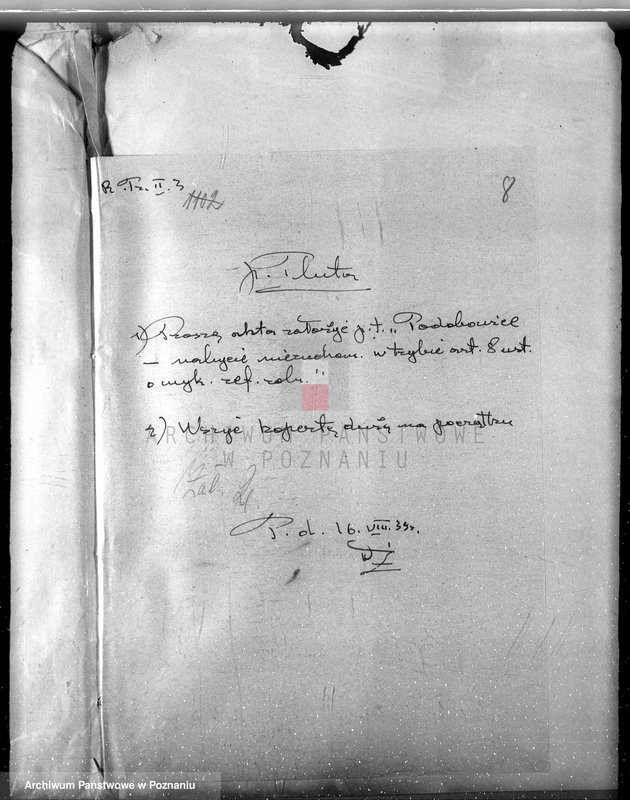 R. Tr. II. 3
1102
8
P. Pluta
1) Proszę akta założyć p.t. „Podobowice
– nabycie nieruchom. w trybie art. 8 ust.
o wyk. ref. roln."
2) Wszyć kopertę dużą na początku
Zał.
P. d. 16. VIII. 39 r.
ARCHIWUM PAŃSTWOWE
W POZNANIU
Archiwum Państwowe w Poznaniu